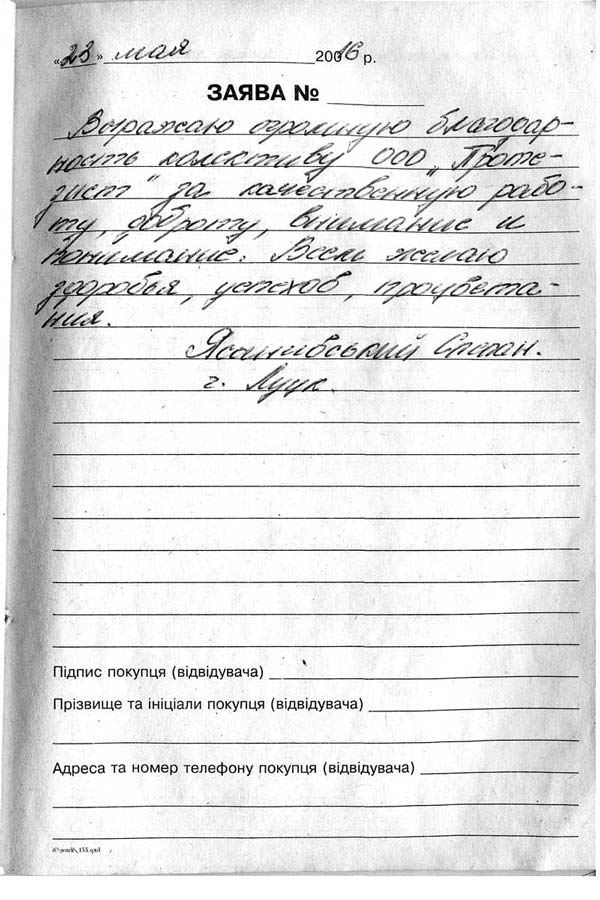 «23» мая 20016 р.
ЗАЯВА №
Выражаю огромную благодар-
ность колективу ООО „Проте-
зист" за качественную рабо-
ту, доброту, внимание и
понимание. Всем желаю
здоровья, успехов, процвета-
ния.
Ясанивський Степан.
г. Луцк.
Підпис покупця (відвідувача)
Прізвище та ініціали покупця (відвідувача)
Адреса та номер телефону покупця (відвідувача)